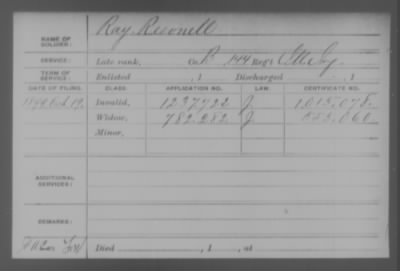 NAME OF SOLDIER: Ray
SERVICE: Late rank, Co. B 144 Reg't Inf
TERM OF SERVICE: Enlisted , 1 Discharged , 1
DATE OF FILING. CLASS. APPLICATION NO. LAW. CERTIFICATE NO.
19. Invalid, 1237422 J. 1.015.078.
Widow, 782.282 J. 553.060
Minor,
ADDITIONAL SERVICES:
REMARKS:
Died , 1 , at